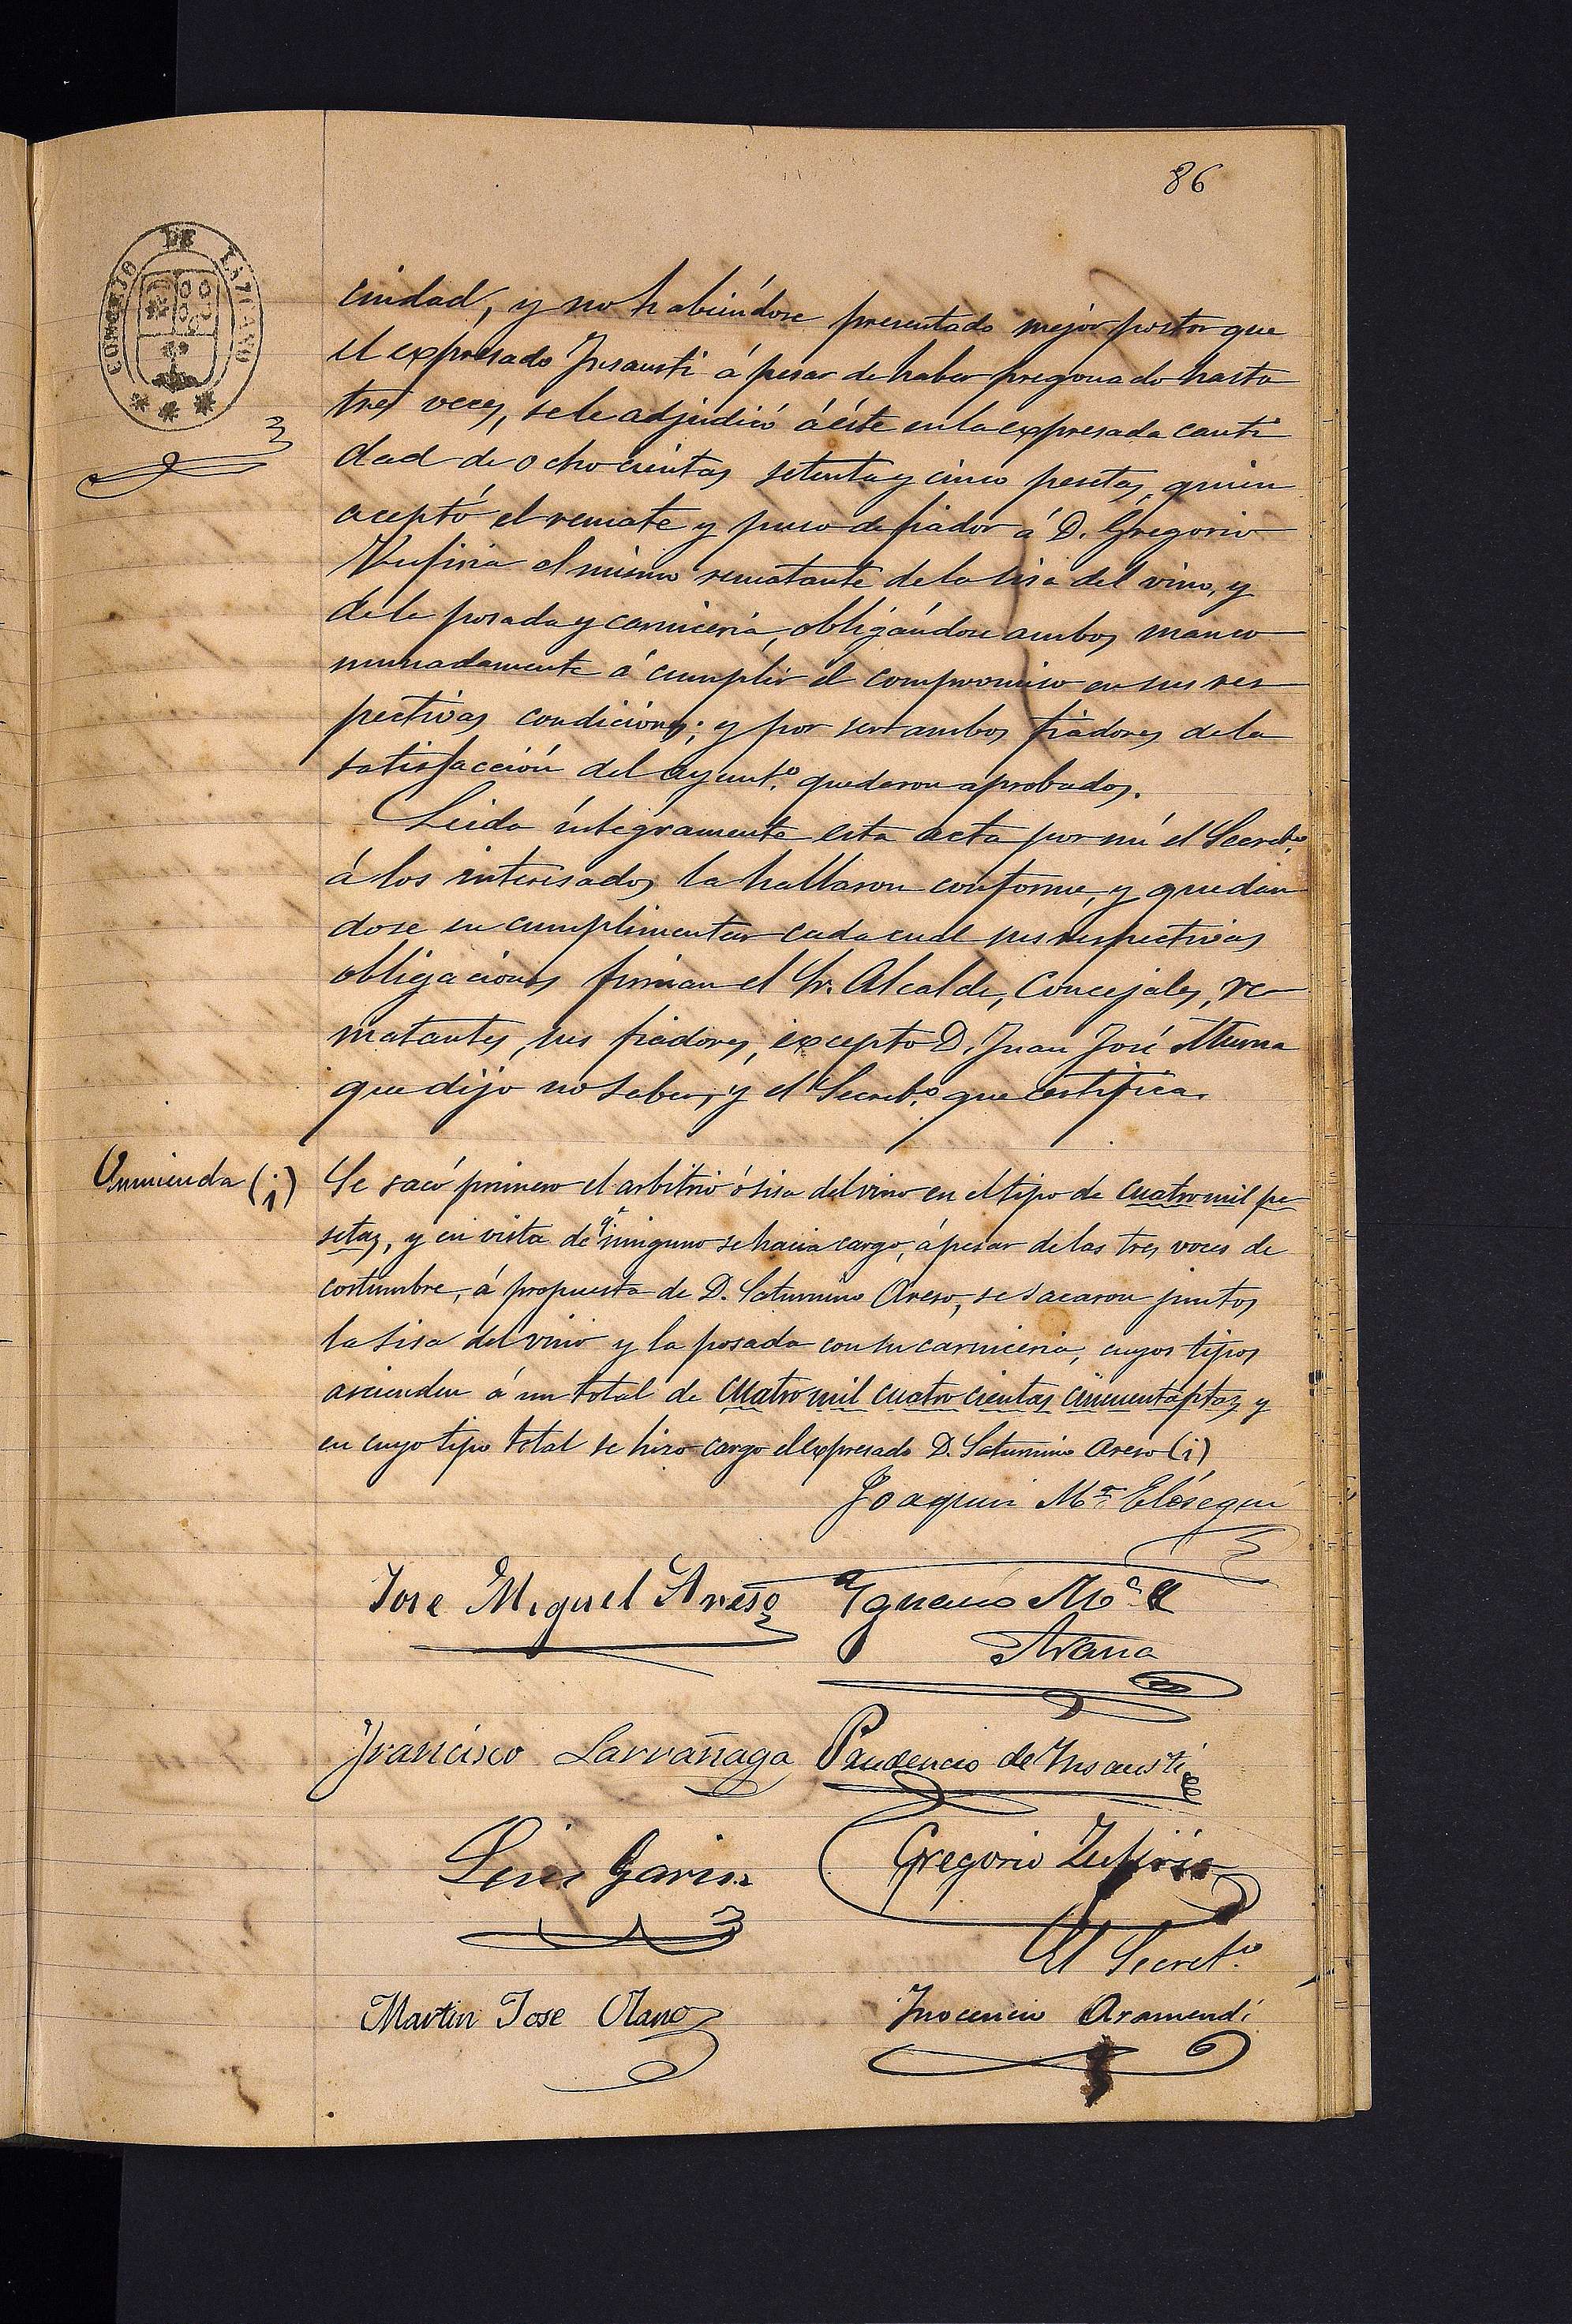 86
CONCEJO DE
ciudad, y no habiéndose presentado mejor postor que
el expresado Insausti á pesar de haber pregonado hasta
tres veces, se le adjudicó á éste en la expresada canti
dad de ochocientas setenta y cinco pesetas, quien
aceptó el remate y puso de fiador á D. Gregorio
Zufiria el mismo rematante de la sisa del vino, y
de la posada y carnicería, obligándose ambos manco
munadamente á cumplir el compromiso en sus res
pectivas condiciones; y por ser ambos fiadores de la
satisfacción del ayunt.º quedaron aprobados.
Leida íntegramente esta acta por mí el Secret.º
á los interesados la hallaron conforme, y quedan
dose en cumplimentar cada cual sus respectivas
obligaciones firman el Sr. Alcalde, Concejales, re
matantes, sus fiadores, excepto D. Juan José
que dijo no saber, y el Secret.º que certifica.
Enmienda (i)
Se sacó primero el arbitrio ó sisa del vino en el tipo de cuatro mil pe
setas, y en vista de q.e ninguno se hacia cargo, á pesar de las tres voces de
costumbre, á propuesta de D. Saturnino Areso, se sacaron juntos
la sisa del vino y la posada con su carniceria, cuyos tipos
ascienden á un total de cuatro mil cuatrocientas cincuenta ptas y
en cuyo tipo total se hizo cargo el expresado D. Saturnino Areso (i)
Joaquin M.ª Elósegui
Jose Miguel Areso Ygnacio M.ª
Arana
Francisco Larrañaga Prudencio de Insausti
Luis Garin Gregorio Zufiria
El Secret.º
Martin Jose Olano Inocencio Aramendi